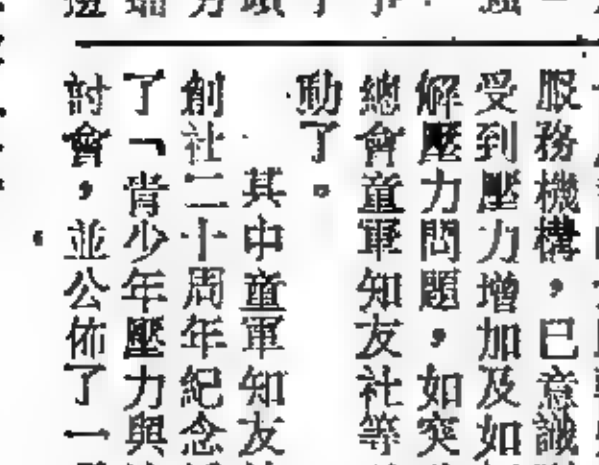 服務機構，已意識
受到壓力增加及如
解壓力問題，如突
總會童軍知友社等
動了。
其中童軍知友
創社二十周年紀念
了「青少年壓力與
討會，並公佈了一